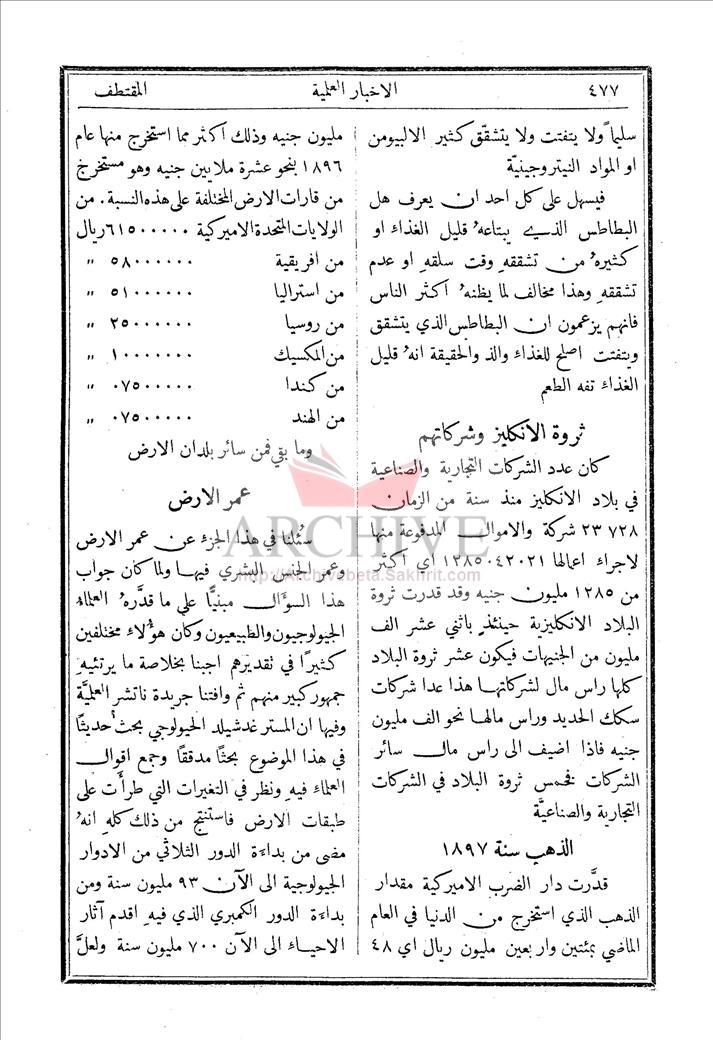 ٤٧٧
الاخبار العلمية
المقتطف
سليماً ولا يتفتت ولا يتشقّق كثير الالبيومن
او المواد النيتروجينيّة
فيسهل على كل احد ان يعرف هل
البطاطس الذي يبتاعهُ قليل الغذاء او
كثيرهُ من تشققهِ وقت سلقهِ او عدم
تشققهِ وهذا مخالف لما يظنهُ اكثر الناس
فانهم يزعمون ان البطاطس الذي يتشقق
ويتفتت اصلح للغذاء والذ والحقيقة انهُ قليل
الغذاء تفه الطعم
ثروة الانكليز وشركاتهم
كان عدد الشركات التجارية والصناعية
في بلاد الانكليز منذ سنة من الزمان
٢٣٧٢٨ شركة والاموال المدفوعة منها
لاجراء اعمالها ١٢٨٥٠٤٢٠٢١ اي اكثر
من ١٢٨٥ مليون جنيه وقد قدرت ثروة
البلاد الانكليزية حينئذٍ باثني عشر الف
مليون من الجنيهات فيكون عشر ثروة البلاد
كلها راس مال لشركاتها هذا عدا شركات
سكك الحديد وراس مالها نحو الف مليون
جنيه فاذا اضيف الى راس مال سائر
الشركات فخمس ثروة البلاد في الشركات
التجارية والصناعيَّة
الذهب سنة ١٨٩٧
قدَّرت دار الضرب الاميركية مقدار
الذهب الذي استخرج من الدنيا في العام
الماضي بمئتين واربعين مليون ريال اي ٤٨
مليون جنيه وذلك اكثر مما استخرج منها عام
١٨٩٦ بنحو عشرة ملايين جنيه وهو مستخرج
من قارات الارض المختلفة على هذه النسبة. من
الولايات المتحدة الاميركية ٦١٥٠٠٠٠٠ ريال
من افريقية ٥٨٠٠٠٠٠٠ "
من استراليا ٥١٠٠٠٠٠٠ "
من روسيا ٢٥٠٠٠٠٠٠ "
من المكسيك ١٠٠٠٠٠٠٠ "
من كندا ٠٧٥٠٠٠٠٠ "
من الهند ٠٧٥٠٠٠٠٠ "
وما بقي فمن سائر بلدان الارض
عمر الارض
سُئلنا في هذا الجزء عن عمر الارض
وعمر الجنس البشري فيها ولما كان جواب
هذا السؤال مبنيًّا على ما قدَّرهُ العلماء
الجيولوجيون والطبيعيون وكان هؤلاء مختلفين
كثيرًا في تقديرهم اجبنا بخلاصة ما يرتئيهِ
جمهور كبير منهم ثم وافتنا جريدة ناتشر العلميَّة
وفيها ان المستر غدشيلد الجيولوجي بحث حديثًا
في هذا الموضوع بحثًا مدققًا وجمع اقوال
العلماء فيهِ ونظر في التغيرات التي طرأت على
طبقات الارض فاستنتج من ذلك كلهِ انهُ
مضى من بداءة الدور الثلاثي من الادوار
الجيولوجية الى الآن ٩٣ مليون سنة ومن
بداءة الدور الكمبري الذي فيهِ اقدم آثار
الاحياء الى الآن ٧٠٠ مليون سنة ولعلَّ
ARCHIVE
http://Archivebeta.Sakhrit.com